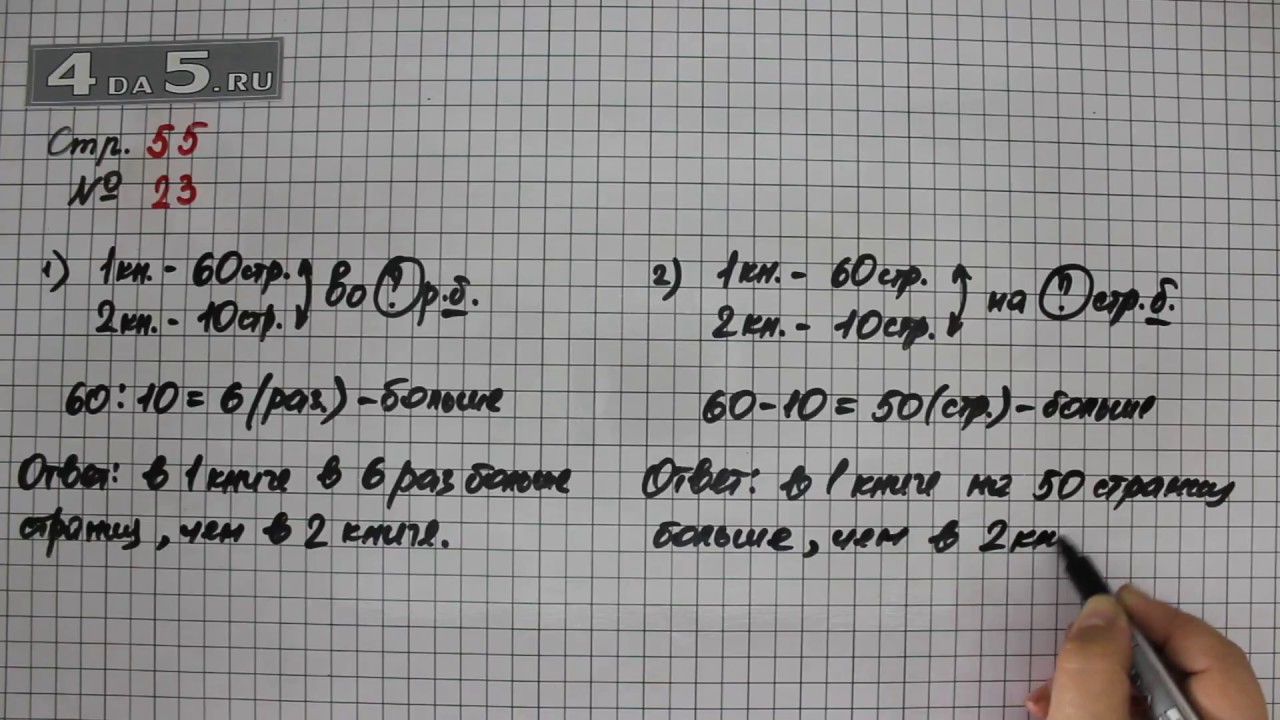 4 DA 5.RU
Стр. 55
№ 23
1) 1кн. - 60стр.
2кн. - 10стр.
во ? р.б.
60 : 10 = 6 (раз) - больше
Ответ: в 1 книге в 6 раз больше
страниц, чем в 2 книге.
2) 1кн. - 60стр.
2кн. - 10стр.
на ? стр.б.
60 - 10 = 50 (стр.) - больше
Ответ: в 1 книге на 50 страниц
больше, чем в 2 кн